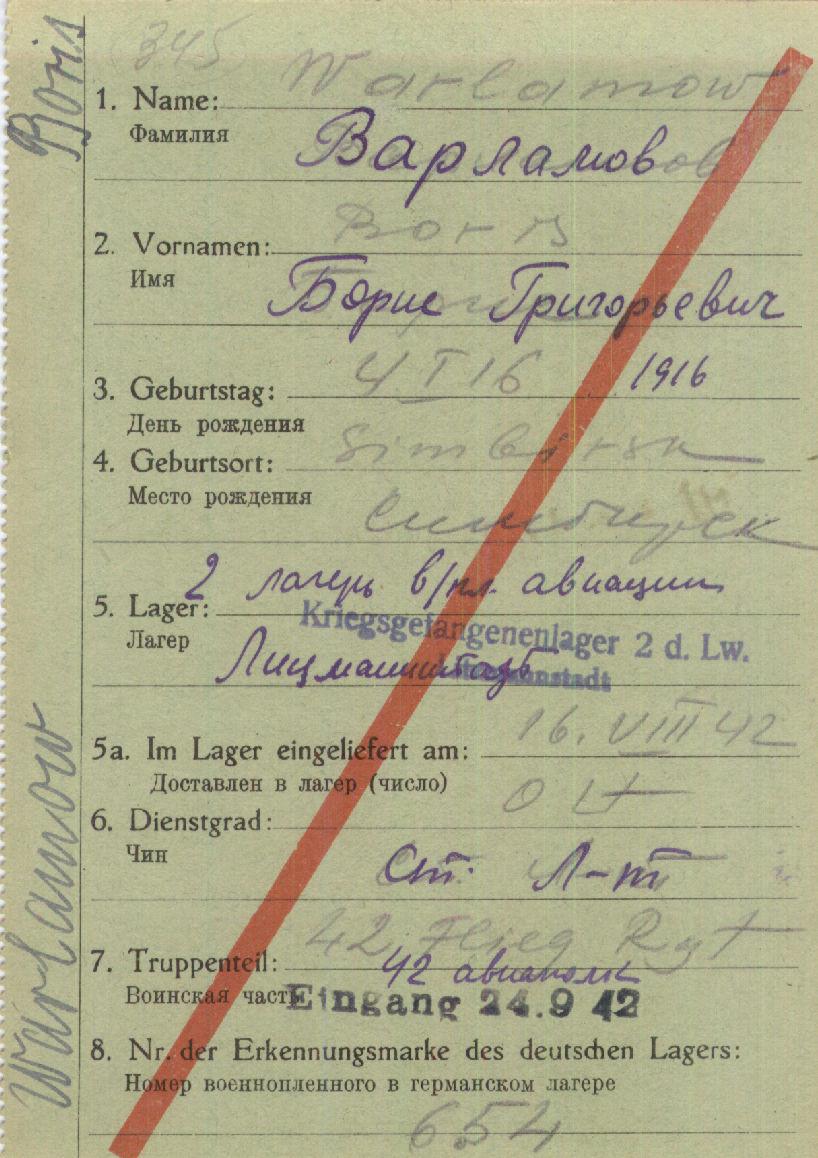 Boris
Warlamow
345
Warlamow
1. Name:
Фамилия
Варламов
Boris
2. Vornamen:
Имя
Борис Григорьевич
4 I 16 1916
3. Geburtstag:
День рождения
Simbirsk
4. Geburtsort:
Место рождения
Симбирск
2 лагерь в/пл. авиации
5. Lager:
Kriegsgefangenenlager 2 d. Lw.
Лагер
Лицманштадт
Litzmannstadt
16. VIII 42
5a. Im Lager eingeliefert am:
Доставлен в лагер (число)
O Lt
6. Dienstgrad:
Чин
Ст. Л-т
42 Flieg Rgt
7. Truppenteil:
42 авиаполк
Воинская часть
Eingang 24.9 42
8. Nr. der Erkennungsmarke des deutschen Lagers:
Номер военнопленного в германском лагере
654